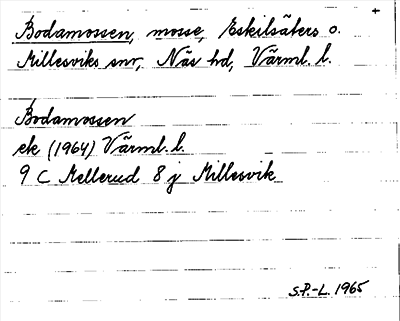 Bodamossen, mosse, Eskilsäters o.
Millesviks snr, Näs hd, Värml. l.
Bodamossen
ek (1964) Värml. l.
9 C Mellerud 8 j Millesvik
S.P.-L. 1965